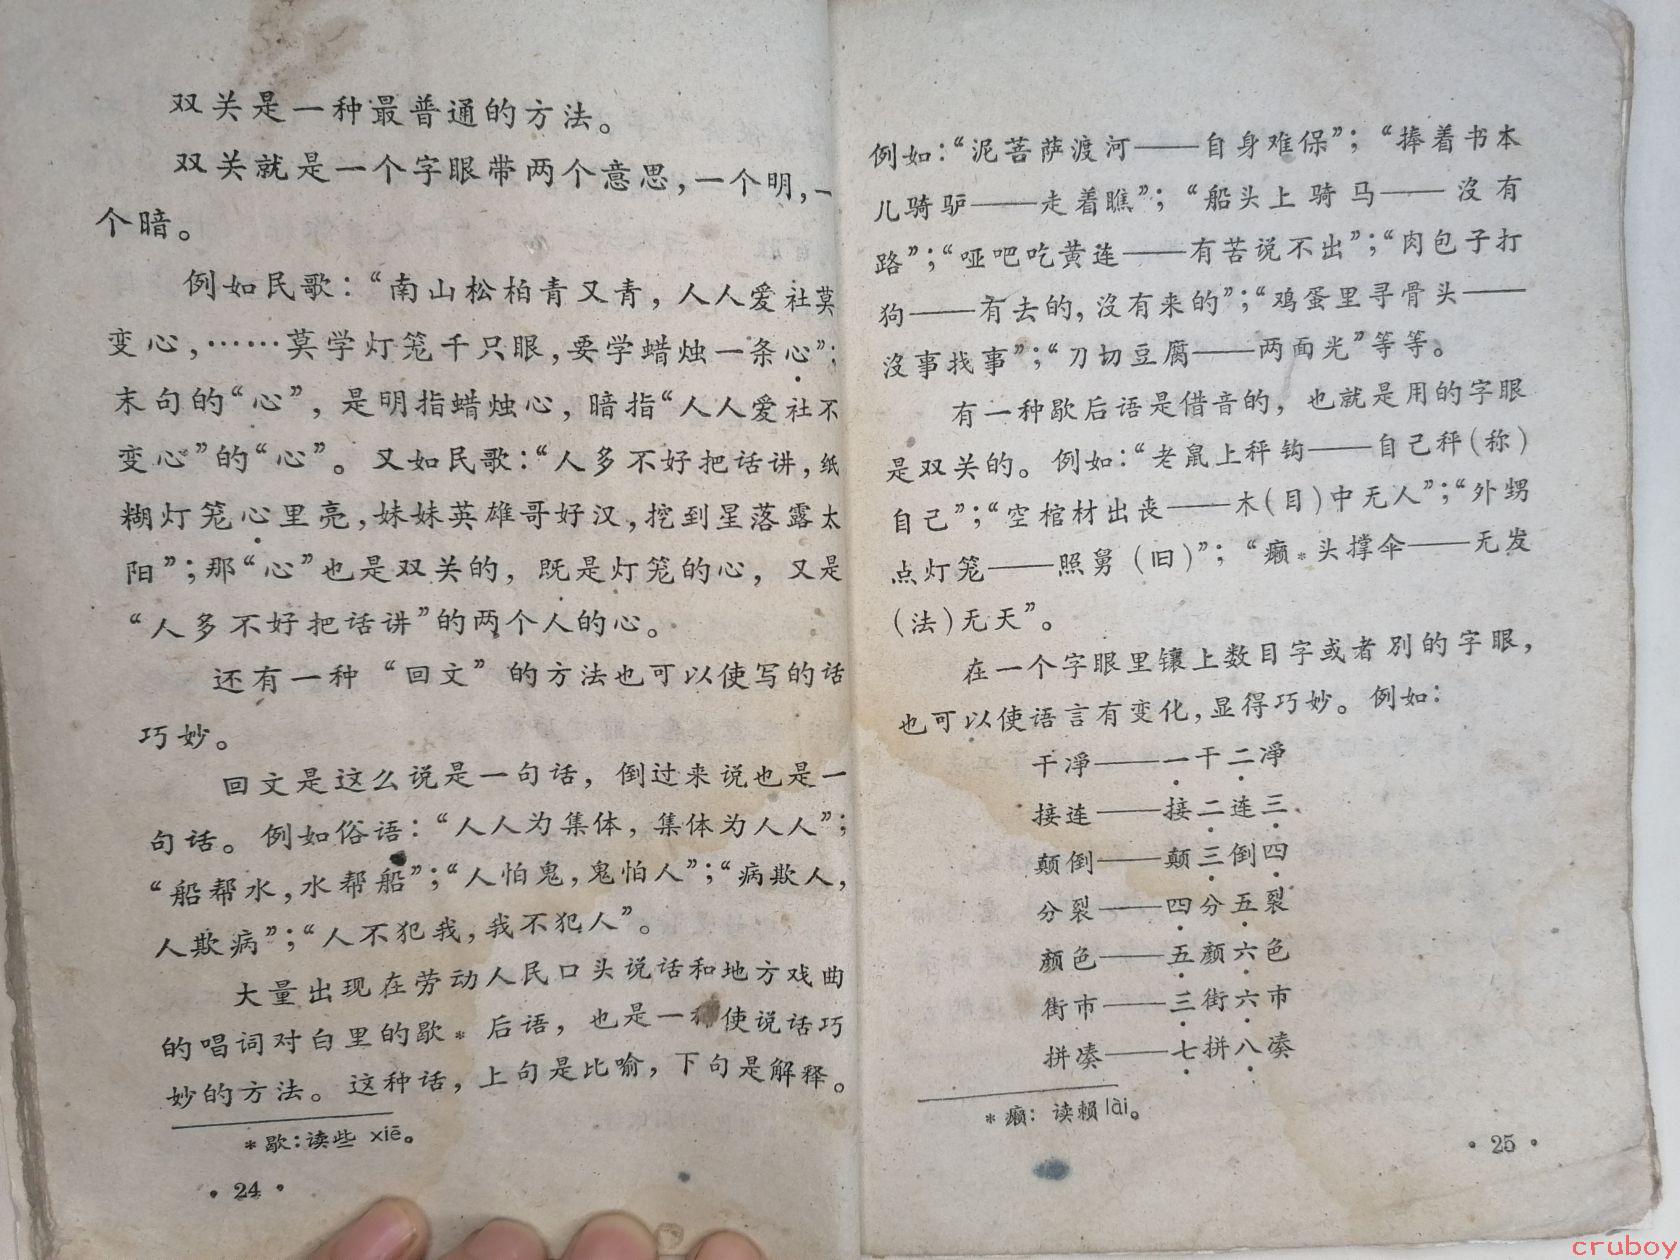 双关是一种最普通的方法。
双关就是一个字眼带两个意思，一个明，一
个暗。
例如民歌：“南山松柏青又青，人人爱社莫
变心，……莫学灯笼千只眼，要学蜡烛一条心”；
末句的“心”，是明指蜡烛心，暗指“人人爱社不
变心”的“心”。又如民歌：“人多不好把话讲，纸
糊灯笼心里亮，妹妹英雄哥好汉，挖到星落露太
阳”；那“心”也是双关的，既是灯笼的心，又是
“人多不好把话讲”的两个人的心。
还有一种“回文”的方法也可以使写的话
巧妙。
回文是这么说是一句话，倒过来说也是一
句话。例如俗语：“人人为集体，集体为人人”；
“船帮水，水帮船”；“人怕鬼，鬼怕人”；“病欺人，
人欺病”；“人不犯我，我不犯人”。
大量出现在劳动人民口头说话和地方戏曲
的唱词对白里的歇*后语，也是一种使说话巧
妙的方法。这种话，上句是比喻，下句是解释。
*歇：读些 xiē。
·24·
例如：“泥菩萨渡河——自身难保”；“捧着书本
儿骑驴——走着瞧”；“船头上骑马——沒有
路”；“哑吧吃黄连——有苦说不出”；“肉包子打
狗——有去的，沒有来的”；“鸡蛋里寻骨头——
沒事找事”；“刀切豆腐——两面光”等等。
有一种歇后语是借音的，也就是用的字眼
是双关的。例如：“老鼠上秤钩——自己秤（称）
自己”；“空棺材出丧——木（目）中无人”；“外甥
点灯笼——照舅（旧）”；“癞*头撑伞——无发
（法）无天”。
在一个字眼里镶上数目字或者別的字眼，
也可以使语言有变化，显得巧妙。例如：
干凈——一干二凈
接连——接二连三
颠倒——颠三倒四
分裂——四分五裂
颜色——五颜六色
街市——三街六市
拼凑——七拼八凑
*癞：读赖lài。
·25·
cruboy